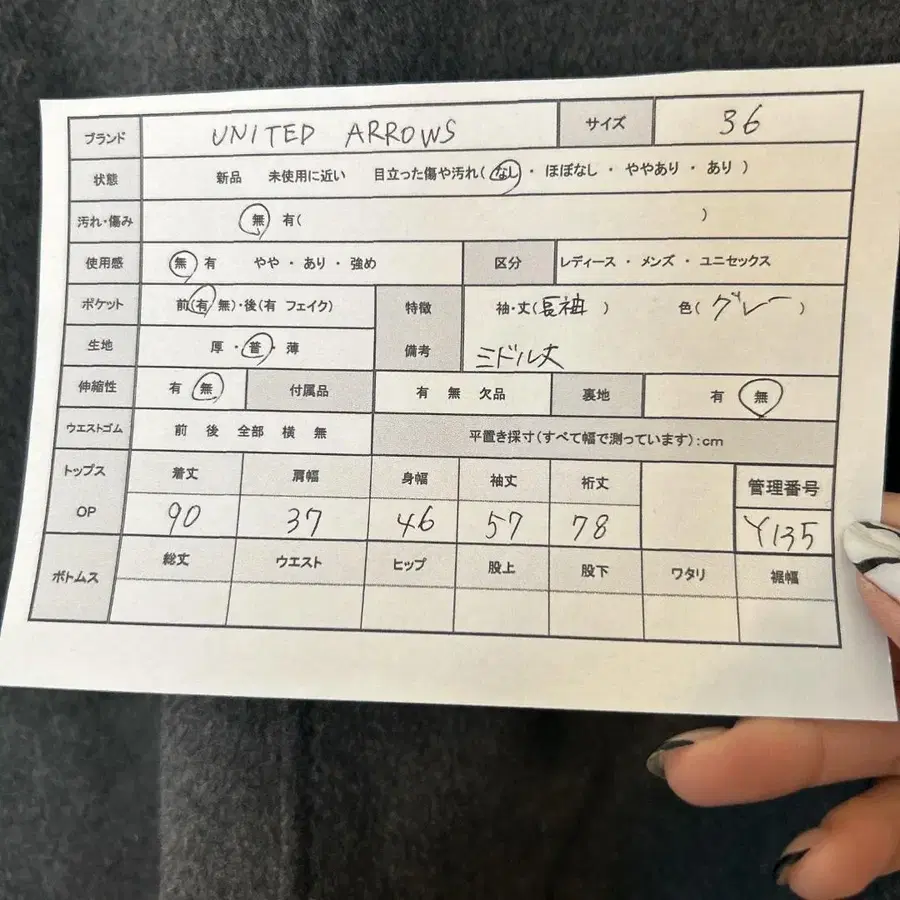 ブランド UNITED ARROWS サイズ 36
状態 新品 未使用に近い 目立った傷や汚れ(なし・ほぼなし・ややあり・あり)
汚れ・傷み 無 有( )
使用感 無 有 やや・あり・強め 区分 レディース・メンズ・ユニセックス
ポケット 前(有 無)・後(有 フェイク) 特徴 袖・丈(長袖) 色(グレー)
生地 厚・普・薄 備考 ミドル丈
伸縮性 有 無 付属品 有 無 欠品 裏地 有 無
ウエストゴム 前 後 全部 横 無 平置き採寸(すべて幅で測っています):cm
トップス 着丈 肩幅 身幅 袖丈 裄丈 管理番号
OP 90 37 46 57 78 Y135
ボトムス 総丈 ウエスト ヒップ 股上 股下 ワタリ 裾幅